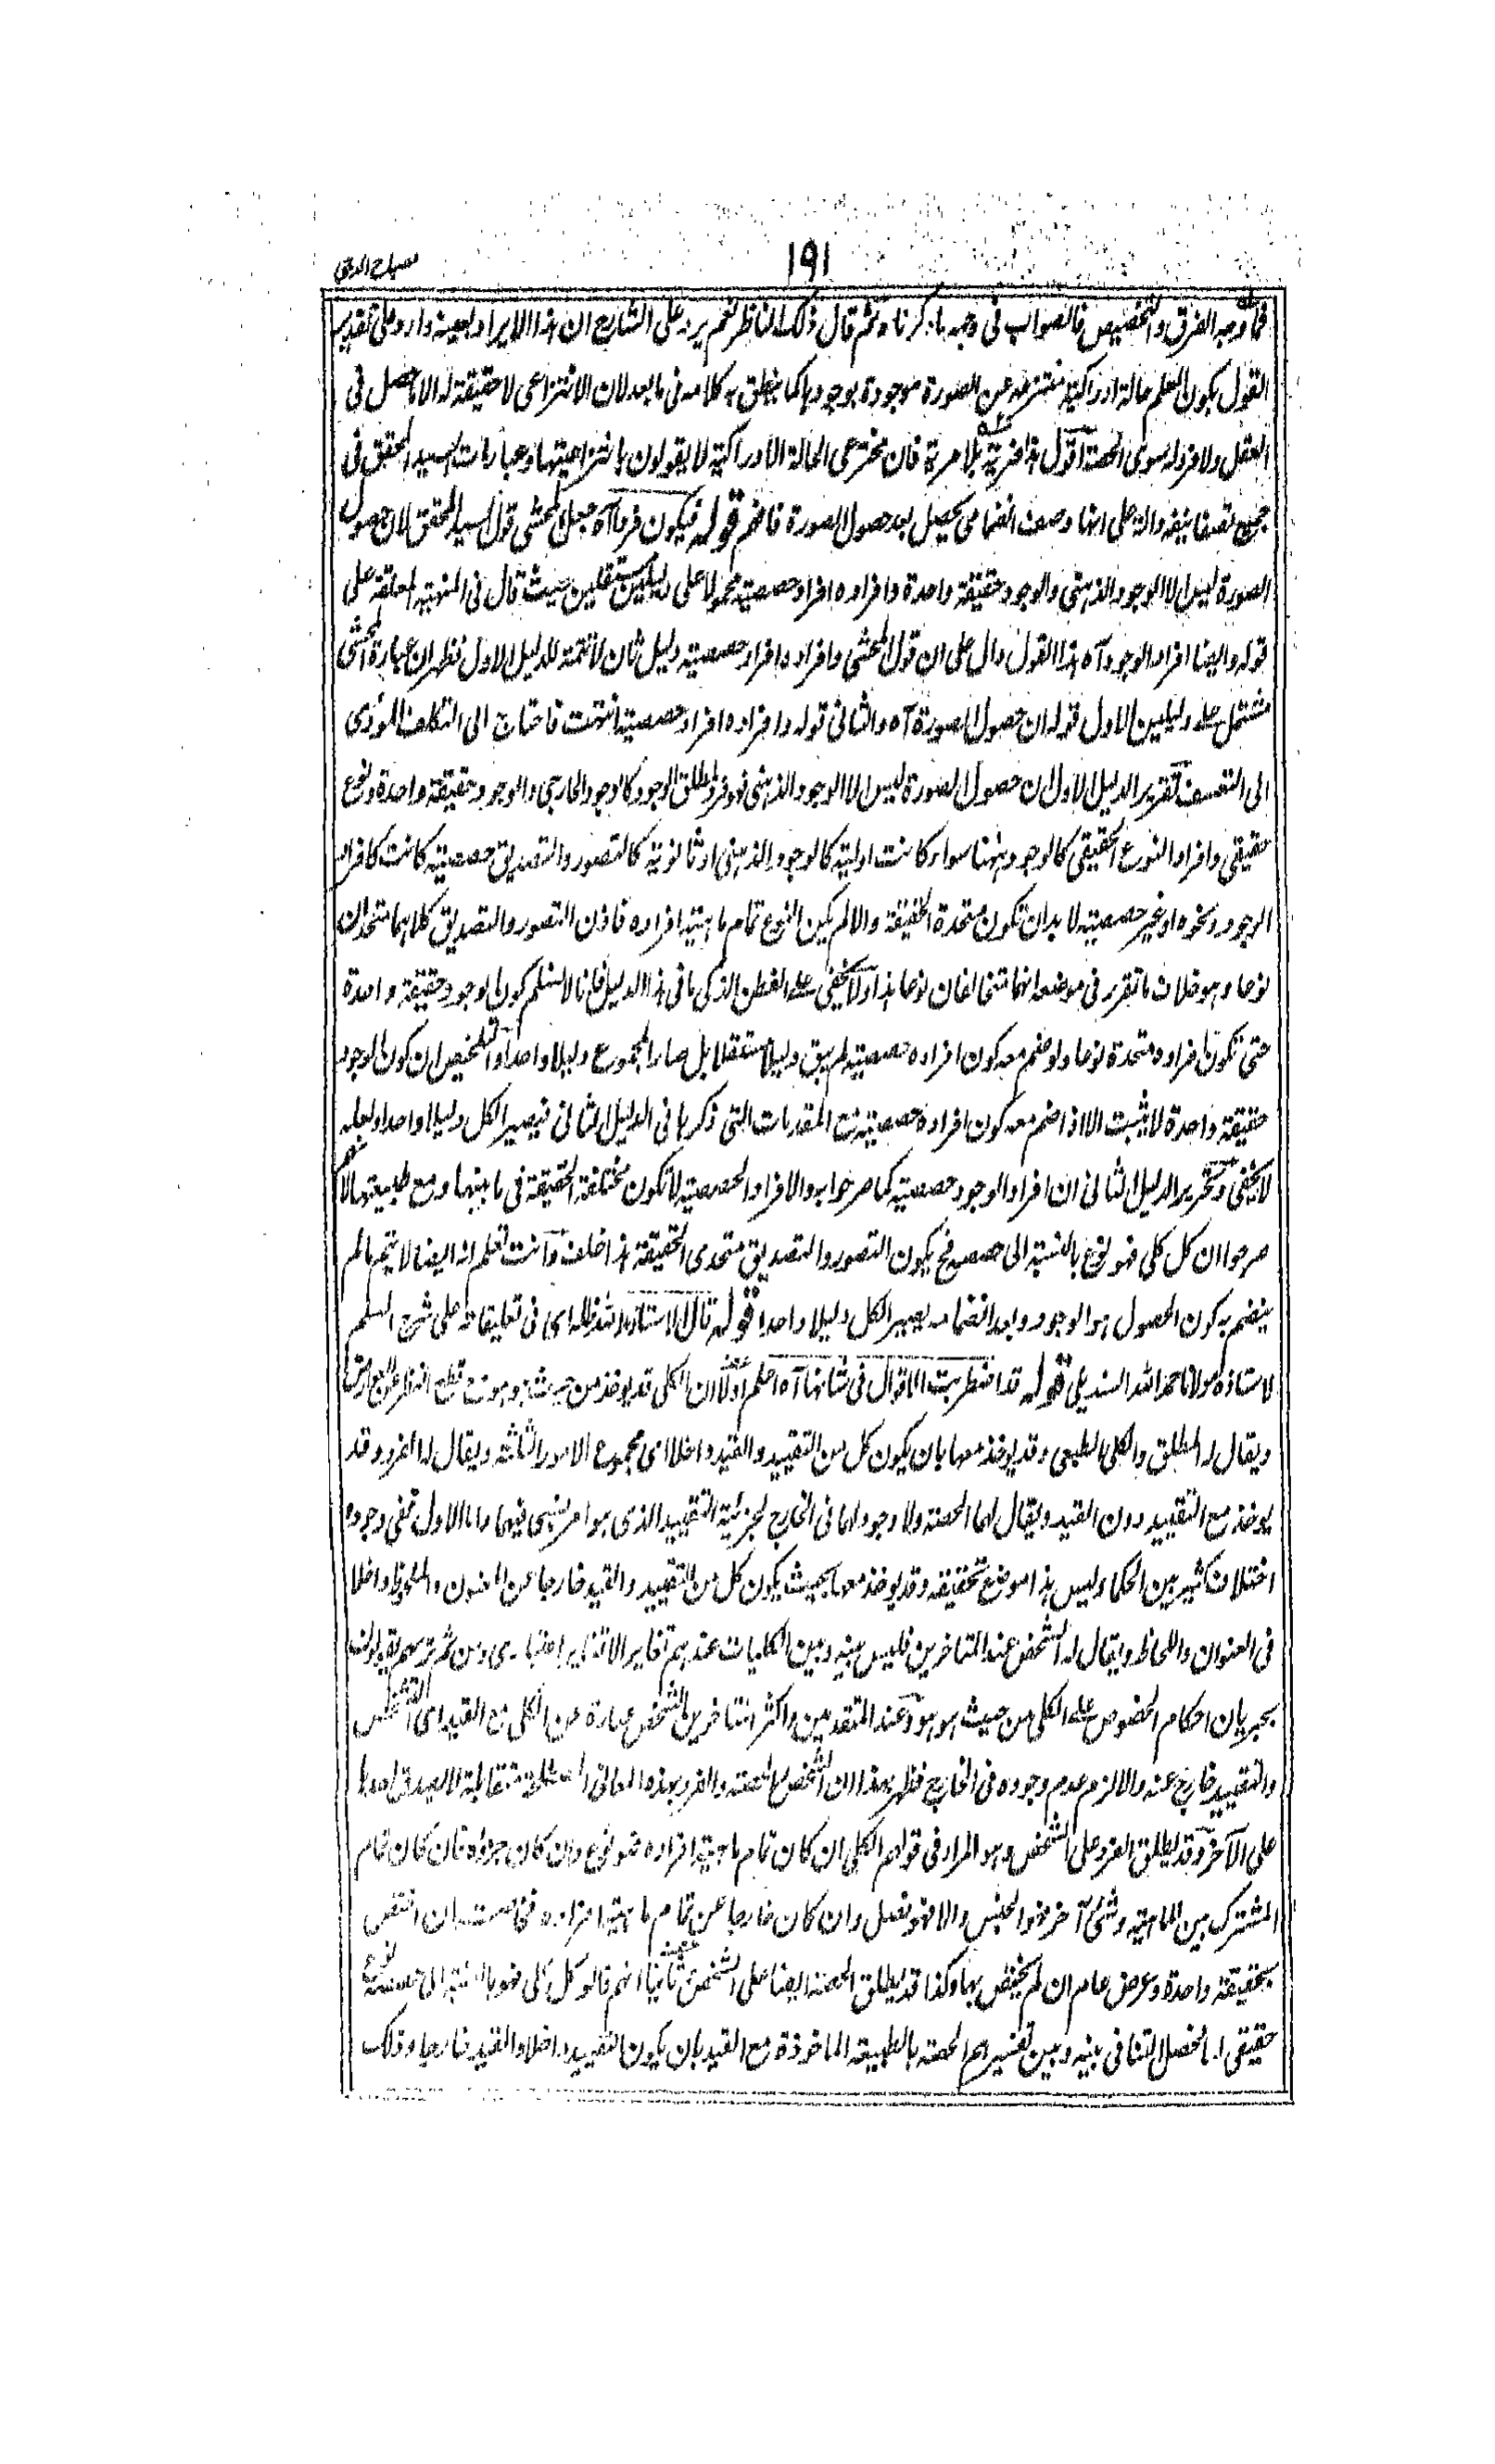 ١٩١
مصباح الدجى
فما وجه الفرق والتخصيص فالصواب فى وجهه ما ذكرناه ثم قال ذلك الناظر نعم يرد على الشارح ان هذا الايراد بعينه وارد على تقدير
القول بكون العلم حالة ادراكية منتزعة عن الصورة موجودة بوجودها كما ينطق به كلامه فى ما بعد لان الانتزاعى لا حقيقة له الا ما حصل فى
العقل ولا فرد له سوى الحصة اقول هذا فرية بلا مرية فان مخترعى الحالة الادراكية لا يقولون بانتزاعيتها وعبارات السيد المحقق فى
جميع تصانيفه دالة على انها وصف انضمامى يحصل بعد حصول الصورة فافهم قوله فيكون فردا آه جعل المحشى قول السيد المحقق لان حصول
الصورة ليس الا الوجود الذهنى والوجود حقيقة واحدة وافراده افراد حصصية محمولا على دليلين مستقلين حيث قال فى المنهية المعلقة على
قوله وايضا افراد الوجود آه هذا القول دال على ان قول المحشى وافراده افراد حصصية دليل ثان لا تتمة للدليل الاول فظهر ان عبارة المحشى
مشتمل على دليلين الاول قوله ان حصول الصورة آه والثانى قوله وافراده افراد حصصية انتهت فاحتاج الى التكلف المؤدى
الى التعسف تقرير الدليل الاول ان حصول الصورة ليس الا الوجود الذهنى فهو فرد لمطلق الوجود كالوجود الخارجى والوجود حقيقة واحدة ونوع
حقيقى وافراد النوع الحقيقى كالوجود ههنا سواء كانت اولية كالوجود الذهنى او ثانوية كالتصور والتصديق حصصية كانت كافراد
الوجود ونحوه او غير حصصية لا بد ان تكون متحدة الحقيقة والا لم يكن النوع تمام ماهية افراده فاذن التصور والتصديق كلاهما متحدان
نوعا وهو خلاف ما تقرر فى موضعه انهما متخالفان نوعا هذا ولا يخفى على الفطن الذكى ما فى هذا الدليل فانا لا نسلم كون الوجود حقيقة واحدة
حتى تكون افراده متحدة نوعا ولو ضم معه كون افراده حصصية لم يبق دليلا مستقلا بل صار المجموع دليلا واحدا والتلخيص ان كون الوجود
حقيقة واحدة لا يثبت الا اذا ضم معه كون افراده حصصية مع المقدمات التى ذكرها فى الدليل الثانى فيصير الكل دليلا واحدا ولعله
لا يخفى وتحرير الدليل الثانى ان افراد الوجود حصصية كما صرحوا به والافراد الحصصية لا تكون مختلفة الحقيقة فى ما بينها ومع طبيعتها لانهم
صرحوا ان كل كلى فهو نوع بالنسبة الى حصصه فح يكون التصور والتصديق متحدى الحقيقة هذا خلف وانت تعلم انه ايضا لا يتم ما لم
ينضم به كون الحصول هو الوجود وبعد انضمامه يصير الكل دليلا واحدا قوله قال الاستاذ مد ظله اى فى تعليقاته على شرح السلم
لاستاذه مولانا حمد الله السنديلى قوله قد اضطربت الاقوال فى شانها آه اعلم اولا ان الكلى قد يوخذ من حيث هو هو مع قطع النظر عن العوارض
ويقال له المطلق والكلى الطبعى وقد يوخذ معها بان يكون كل من التقييد والقيد داخلا اى مجموع الامور الثلثة ويقال له الفرد وقد
يوخذ مع التقييد دون القيد ويقال لها الحصة ولا وجود لهما فى الخارج لجزئية التقييد الذى هو امر نسبى فيهما واما الاول ففى وجوده
اختلاف كثير بين الحكماء وليس هذا موضع تحقيقه وقد يوخذ معها بحيث يكون كل من التقييد والقيد خارجا عن المعنون والملحوظ داخلا
فى العنوان واللحاظ ويقال له الشخص عند المتاخرين فليس بينه وبين الكليات عندهم تغاير الا تغاير اعتبارى ومن ثم تراهم يقولون
بجريان احكام الخصوص على الكلى من حيث هو هو وعند المتقدمين واكثر المتاخرين الشخص عبارة عن الكلى مع القيد اى التشخص
والتقييد خارج عنه والا لزم عدم وجوده فى الخارج فظهر بهذا ان الشخص والحصة والفرد بهذه المعانى المصطلحة متقابلة لا يصدق احدها
على الآخر وقد يطلق الفرد على الشخص وهو المراد فى قولهم الكلى ان كان تمام ماهية افراده فهو نوع وان كان جزؤه فان كان تمام
المشترك بين الماهية وشئ آخر فهو الجنس والا فهو فصل وان كان خارجا عن تمام ماهية افراده فخاصة ان اختص
بحقيقة واحدة وعرض عام ان لم يختص بها وكذا قد يطلق الحصة ايضا على الشخص ثانيا انهم قالوا كل كلى فهو بالنسبة الى حصصه نوع
حقيقى التنافى بينه وبين تفسيرهم الحصة بالطبيعة الماخوذة مع القيد بان يكون التقييد داخلا والقيد خارجا وذلك